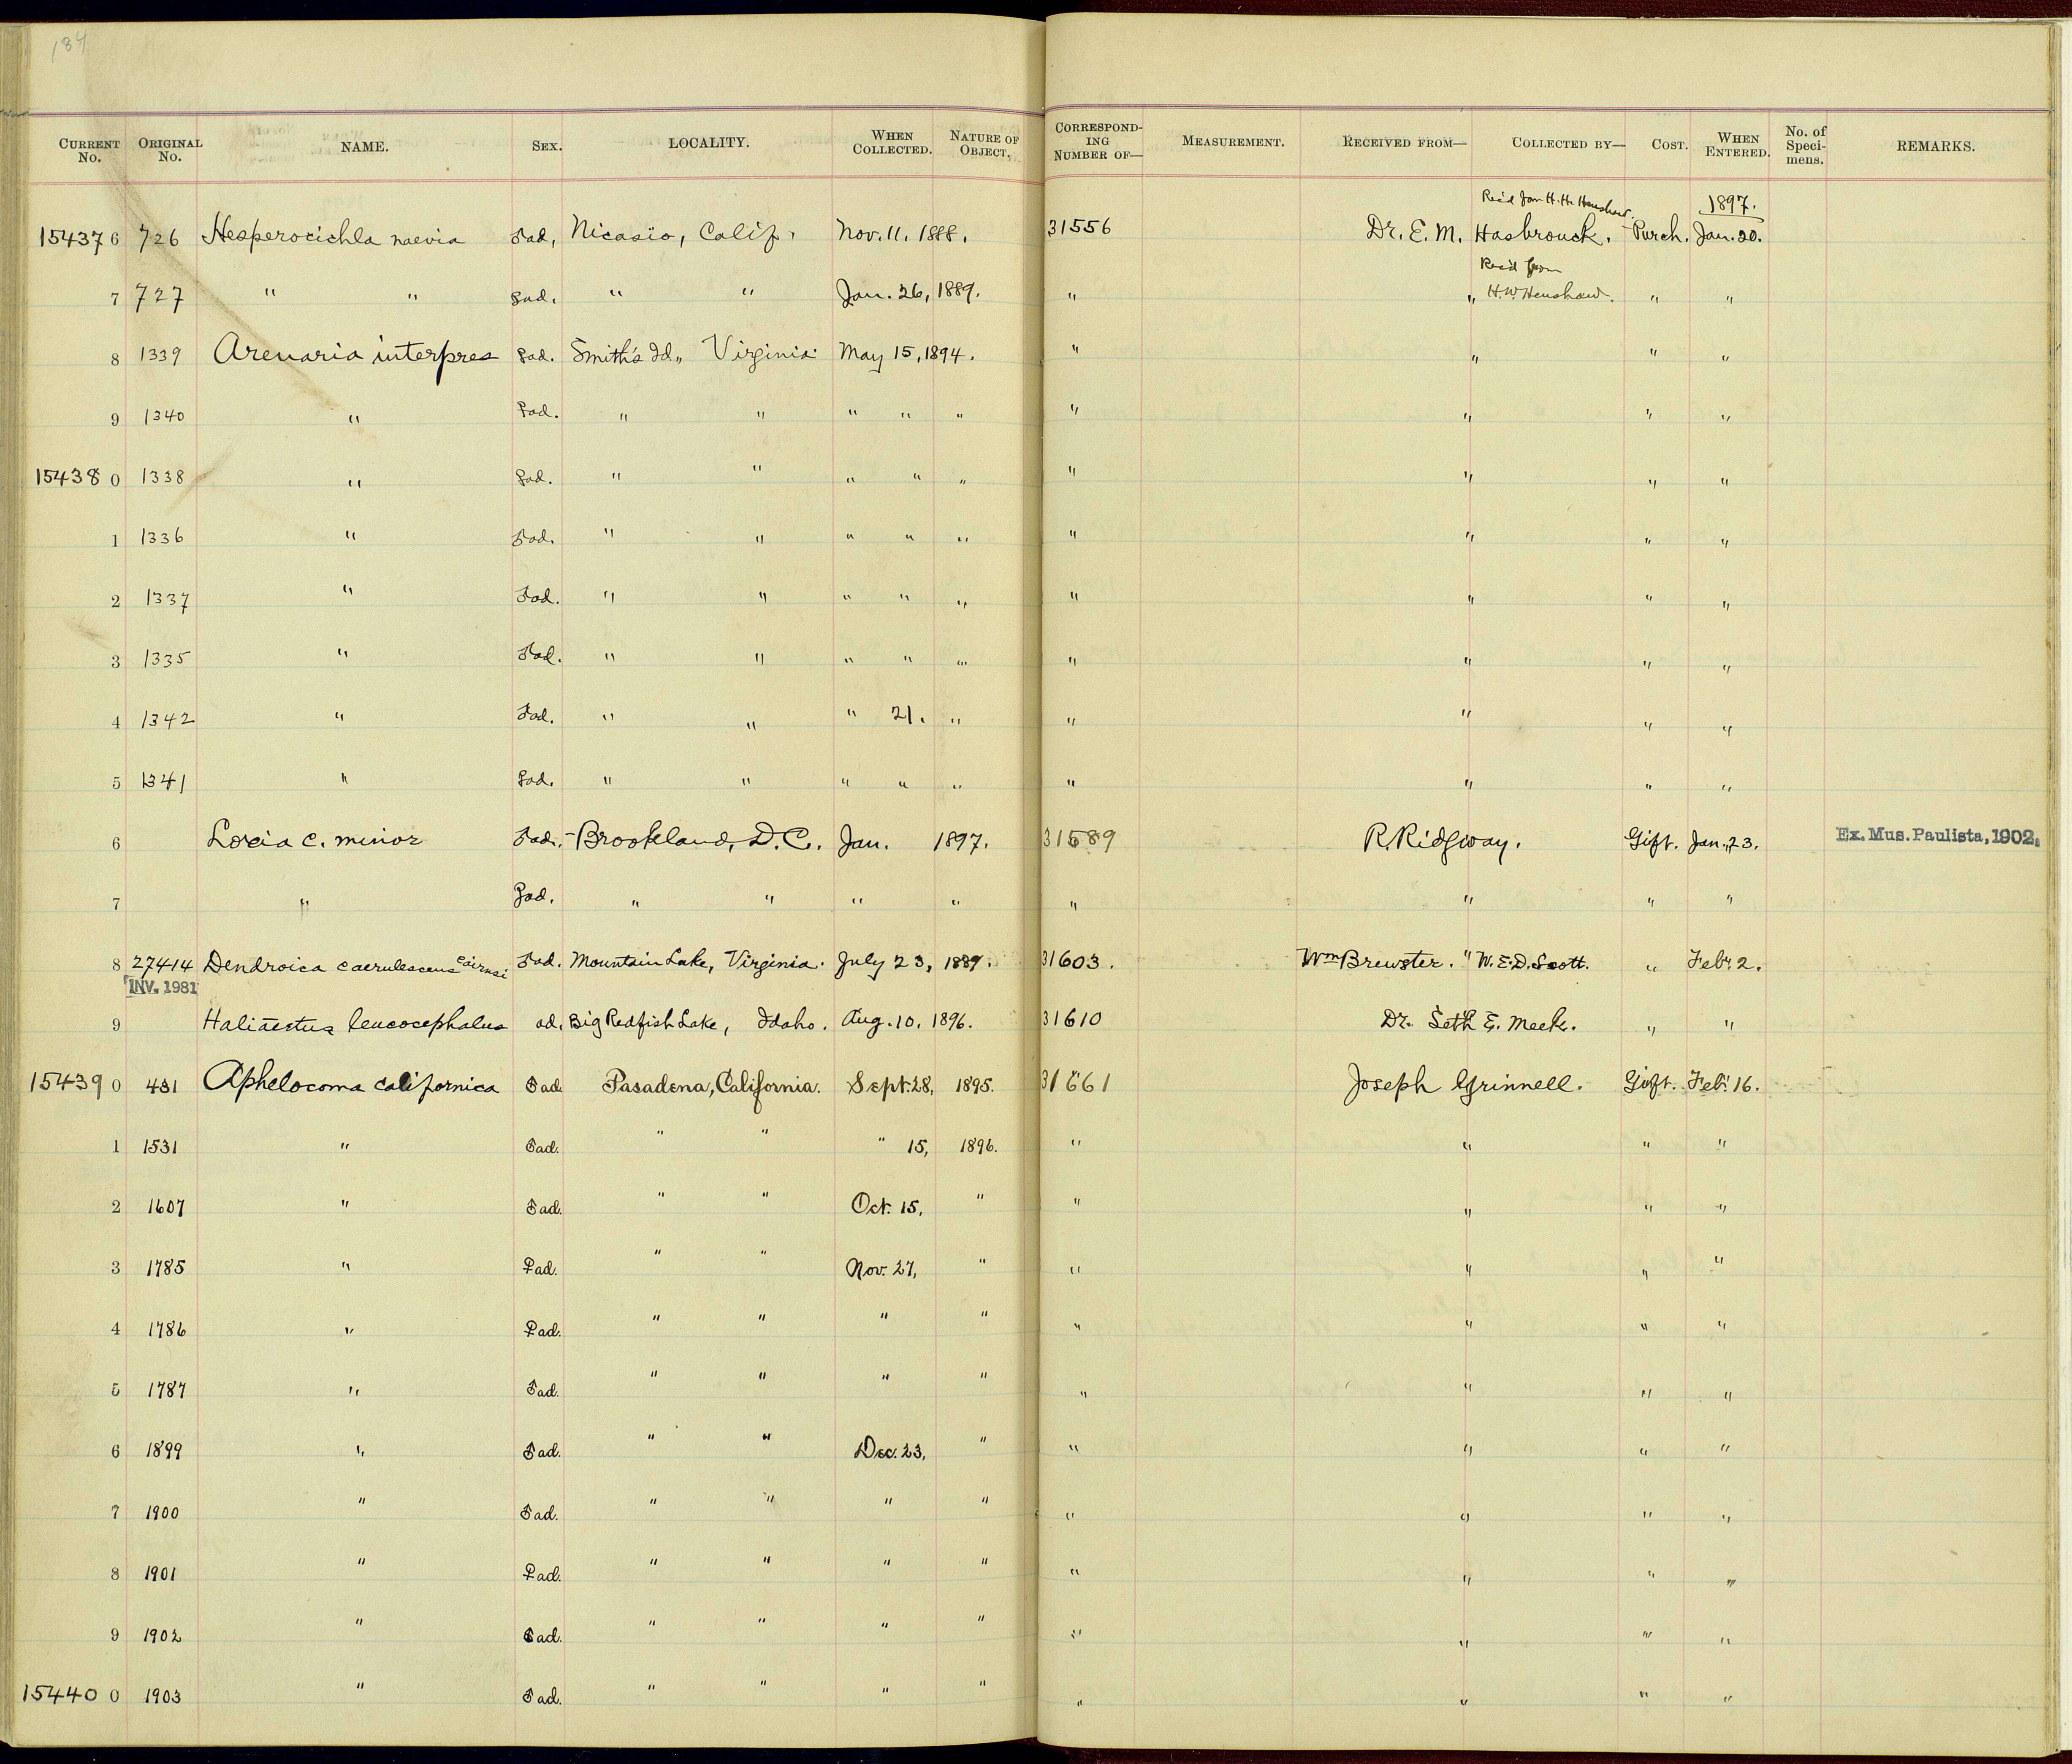 134
CURRENT No. ORIGINAL No. NAME. SEX. LOCALITY. WHEN COLLECTED. NATURE OF OBJECT. CORRESPONDING NUMBER OF— MEASUREMENT. RECEIVED FROM— COLLECTED BY— COST. WHEN ENTERED. No. of Specimens. REMARKS.
Rec'd from H. W. Henshaw. 1897.
154376 726 Hesperocichla naevia ♂ad. Nicasio, Calif. Nov. 11, 1888. 31556 Dr. E. M. Hasbrouck. Purch. Jan. 20.
Rec'd from
7 727 " " ♀ad. " " Jan. 26, 1889. " " H. W. Henshaw. " "
8 1339 Arenaria interpres ♀ad. Smith's Id., Virginia. May 15, 1894. " " " "
9 1340 " ♀ad. " " " " " " " " "
154380 1338 " ♀ad. " " " " " " " " "
1 1336 " ♂ad. " " " " " " " " "
2 1337 " ♂ad. " " " " " " " " "
3 1335 " ♂ad. " " " " " " " " "
4 1342 " ♂ad. " " " 21. " " " " "
5 1341 " ♀ad. " " " " " " " " "
6 Loxia c. minor ♂ad. Brookland, D.C. Jan. 1897. 31589 R. Ridgway. Gift. Jan. 23. Ex. Mus. Paulista, 1902.
7 " ♀ad. " " " " " " " "
8 27414 Dendroica caerulescens cairnsi ♂ad. Mountain Lake, Virginia. July 23, 1889. 31603. Wm Brewster. " W. E. D. Scott. " Feb. 2.
INV. 1981
9 Haliæetus leucocephalus ad. Big Redfish Lake, Idaho. Aug. 10, 1896. 31610 Dr. Seth E. Meek. " "
154390 431 Aphelocoma californica ♂ad. Pasadena, California. Sept. 28, 1895. 31661 Joseph Grinnell. Gift. Feb. 16.
1 1531 " ♂ad. " " " 15, 1896. " " " "
2 1607 " ♂ad. " " Oct. 15, " " " " "
3 1785 " ♀ad. " " Nov. 27, " " " " "
4 1786 " ♀ad. " " " " " " " "
5 1787 " ♂ad. " " " " " " " "
6 1899 " ♂ad. " " Dec. 23, " " " " "
7 1900 " ♂ad. " " " " " " " "
8 1901 " ♀ad. " " " " " " " "
9 1902 " ♂ad. " " " " " " " "
154400 1903 " ♂ad. " " " " " " " "